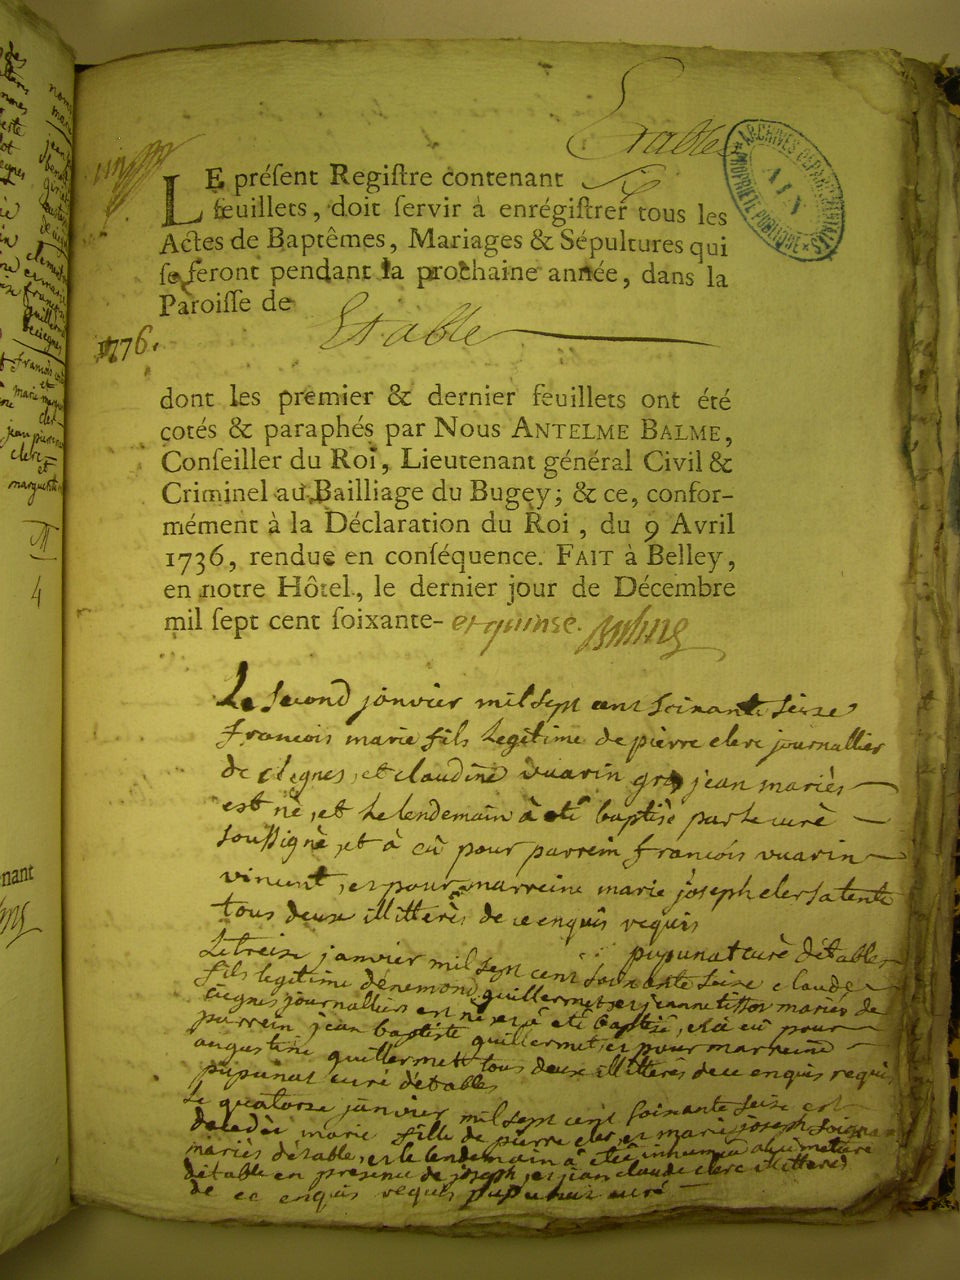 Etable
ARCHIVES DEPARTEMENTALES
AIN
PROPRIETE PUBLIQUE
LE préſent Regiſtre contenant Six
feuillets, doit ſervir à enrégiſtrer tous les
Actes de Baptêmes, Mariages & Sépultures qui
ſe feront pendant la prochaine année, dans la
Paroiſſe de
Etable
1776.
dont les premier & dernier feuillets ont été
cotés & paraphés par Nous ANTELME BALME,
Conſeiller du Roi, Lieutenant général Civil &
Criminel au Bailliage du Bugey; & ce, confor-
mément à la Déclaration du Roi, du 9 Avril
1736, rendue en conſéquence. FAIT à Belley,
en notre Hôtel, le dernier jour de Décembre
mil ſept cent ſoixante- et quinse.
Le second janvier mil sept cent soixante seize
francois marie fils legitime de pierre clerc journallier
de clegnes, et claudine vuarin gros jean mariès
est nè, et le lendemain à etè baptisè par le curè
soussignè, et à eû pour parrein francois vuarin
vincent, et pour marreine marie joseph clerc sa tente
tous deux illitterès de ce enquis requis
pupunat curè d'etables
Le treize janvier mil sept cent soixante seize claude
fils legitime d'enemond guillermet et jeanne tissot mariès de
clegnes journalliers est nè et à etè baptisè, et à eû pour
parrein jean baptiste guillermet, et pour marreine
augustine guillermet tous deux illitterès de ce enquis requis
pupunat curé d'etables
Le quatorze janvier mil sept cent soixante seize est
decedèe marie fille de pierre clerc et marie joseph
mariès d'etable, et le lendemain à etèe inhumèe au cimetiere
d'etable en presence de joseph, et jean claude clerc illitterès
de ce enquis requis pupunat curé
4
nant